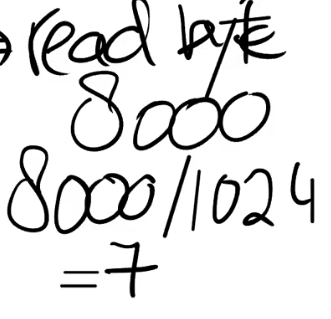 read byte
8000
8000/1024
=7